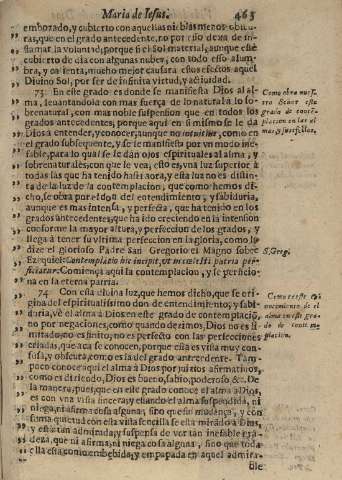 Maria de Iesus. 463
embozado, y cubierto con aquellas nieblas menos obscu-
ras, que en el grado antecedente, no por esso dexa de in-
flamar la voluntad; porque si el Sol material, aunque esté
cubierto de dia con algunas nubes, con todo esso alum-
bra, y calienta, mucho mejor causara estos efectos aquel
Diuino Sol, por ser de infinita virtud, y actiuidad.
73 En este grado es donde se manifiesta Dios al al-
ma, leuantandola con mas fuerça de lo natural a lo so-
brenatural, con mas noble suspension que en todos los
grados antecedentes, porque aqui en si mismo se le da
Dios à entender, y conocer, aunque no intuitiue, como en
el grado subsequente, y se le manifiesta por vn modo ine-
fable, para lo qual se le dàn ojos espirituales al alma, y
sobrenaturales, con que le vea, esto es, vna luz superior à
todas las que ha tenido hasta aora, y esta luz no es distin-
ta de la luz de la contemplacion, que como hemos di-
cho, se obra por el don del entendimiento, y sabiduria,
aunque es mas intensa, y perfecta, que ha tenido en los
grados antecedentes, que ha ido creciendo en la intension
conforme la mayor altura, y perfeccion de los grados, y
llega à tener su vltima perfeccion en la gloria, como lo
dize el glorioso Padre San Gregorio el Magno sobre
Ezequiel: Contemplatio hic incipit, vt in cœlesti patria per-
ficiatur. Comiença aqui la contemplacion, y se perficio-
na en la eterna patria.
74 Con esta diuina luz, que hemos dicho, que se ori-
gina del espiritualissimo don de entendimiento, y sabi-
duria, vè el alma à Dios en este grado de contemplaciō,
no por negaciones, como quando dezimos, Dios no es li-
mitado, no es finito, no es perfecto con las perfecciones
criadas, que aca se conocen, porque esta es vista muy con-
fusa, y obscura, como es la del grado antecedente. Tam-
poco conoce aqui el alma à Dios por juizios afirmatiuos,
como es diziendo, Dios es bueno, sabio, poderoso &c. De
la manera, pues, que en este grado conoce el alma à Dios,
es con vna vista sincera, y estando el alma suspendida, ni
niega, ni afirma cosa alguna, sino que sin mudança, y con
suma quietud con esta vista sencilla se està mirado à Dios,
y està tan admirada, y suspensa de ver tan inefable grā-
deza, que ni afirma, ni niega cosa alguna, sino que toda
ella està como embebida, y empapada en aquel admira-
ble
Como obra nues-
tro Señor este
grado de contē-
placion en las al-
mas, y sus efectos.
S. Greg.
Como es este co-
nocimiento de el
alma en este gra-
do de contem-
placion.